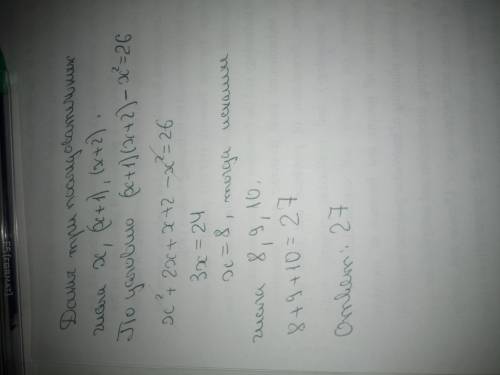 Даны три последовательных
числа x, (x+1), (x+2).
По условию (x+1)(x+2) - x²=26
x² + 2x + x + 2 - x² = 26
3x = 24
x = 8, тогда искомые
числа 8, 9, 10.
8 + 9 + 10 = 27
Ответ: 27